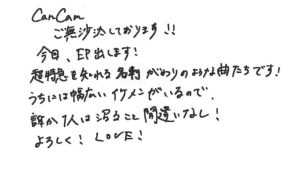 CanCam
ご無沙汰しております!!
今日、EP出します!
超特急を知れる名刺がわりのような曲たちです!
うちには幅広いイケメンがいるので、
誰か1人は沼ること間違いなし!
よろしく! LOVE!